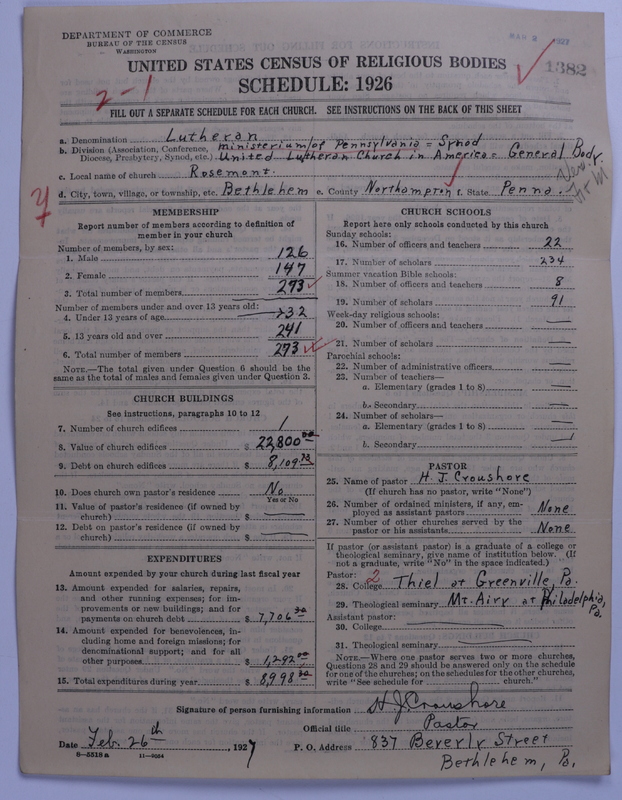 DEPARTMENT OF COMMERCE
BUREAU OF THE CENSUS
WASHINGTON
UNITED STATES CENSUS OF RELIGIOUS BODIES
SCHEDULE: 1926
1382
2-1
FILL OUT A SEPARATE SCHEDULE FOR EACH CHURCH. SEE INSTRUCTIONS ON THE BACK OF THIS SHEET
a. Denomination Lutheran
b. Division (Association, Conference, Diocese, Presbytery, Synod, etc.) ministerium of Pennsylvania = Synod
United Lutheran Church in America = General Body.
c. Local name of church Rosemont.
d. City, town, village, or township, etc. Bethlehem e. County Northampton f. State Penna.
MEMBERSHIP
Report number of members according to definition of
member in your church
Number of members, by sex:
1. Male 126
2. Female 147
3. Total number of members 273
Number of members under and over 13 years old:
4. Under 13 years of age 32
5. 13 years old and over 241
6. Total number of members 273
NOTE.—The total given under Question 6 should be
same as the total of males and females given under Question 3.
CHURCH BUILDINGS
See instructions, paragraphs 10 to 12
7. Number of church edifices 1
8. Value of church edifices $ 22,800 00
9. Debt on church edifices $ 8,109
10. Does church own pastor's residence No
Yes or No
11. Value of pastor's residence (if owned by
church) $ —
12. Debt on pastor's residence (if owned by
church) $ —
EXPENDITURES
Amount expended by your church during last fiscal year
13. Amount expended for salaries, repairs,
and other running expenses; for im-
provements or new buildings; and for
payments on church debt $ 7,706
14. Amount expended for benevolences, in-
cluding home and foreign missions; for
denominational support; and for all
other purposes $ 1,292 00
15. Total expenditures during year $ 8998
CHURCH SCHOOLS
Report here only schools conducted by this church
Sunday schools:
16. Number of officers and teachers 22
17. Number of scholars 234
Summer vacation Bible schools:
18. Number of officers and teachers 8
19. Number of scholars 91
Week-day religious schools:
20. Number of officers and teachers —
21. Number of scholars —
Parochial schools:
22. Number of administrative officers —
23. Number of teachers—
a. Elementary (grades 1 to 8) —
b. Secondary —
24. Number of scholars—
a. Elementary (grades 1 to 8) —
b. Secondary —
PASTOR
25. Name of pastor H. J. Croushore
(If church has no pastor, write "None")
26. Number of ordained ministers, if any, em-
ployed as assistant pastors None
27. Number of other churches served by the
pastor or his assistants None
If pastor (or assistant pastor) is a graduate of a college or
theological seminary, give name of institution below. (If
not a graduate, write "No" in the space indicated.)
Pastor:
28. College 2 Thiel at Greenville, Pa.
29. Theological seminary Mt. Airy at Philadelphia, Pa.
Assistant pastor:
30. College
31. Theological seminary
NOTE.—Where one pastor serves two or more churches,
Questions 28 and 29 should be answered only on the schedule
for one of the churches; on the schedules for the other churches,
write "See schedule for church."
Signature of person furnishing information H J Croushore
Official title Pastor
Date Feb. 26th, 1927 P. O. Address 837 Beverly Street
Bethlehem, Pa.
8—5518a 11—9064